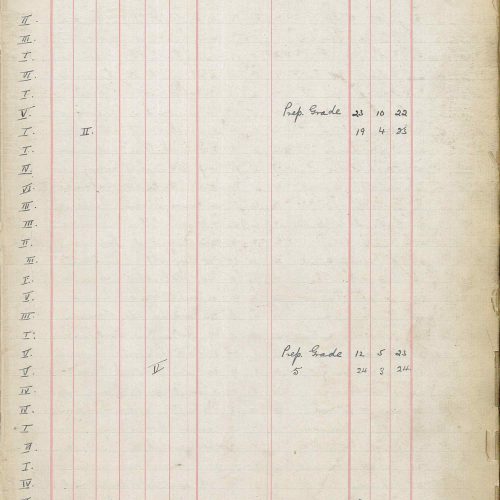 II.
III.
I.
II.
I.
V. Prep. Grade 23 10 22
I. II. 19 4 23
I.
IV.
VI.
III.
III.
II.
III.
I.
V.
III.
I.
V. Prep. Grade 12 5 23
V. V 5 24 3 24
IV.
IV.
I
II.
I.
IV.